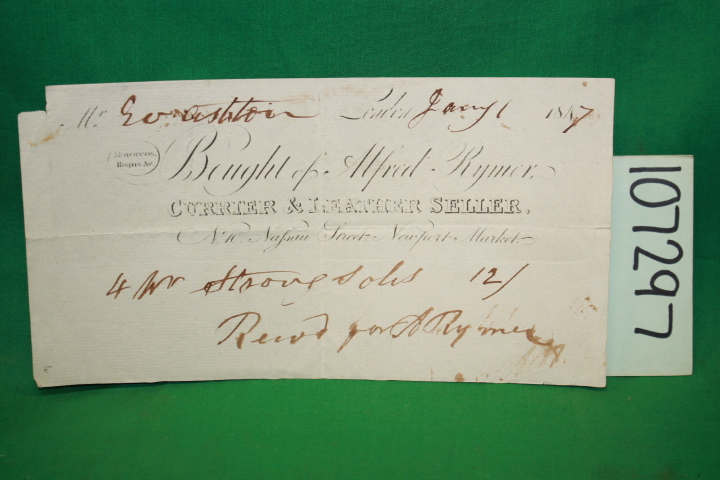 Mr London Jany 1 1847
Morocco's,
Roans &c.
Bought of Alfred Rymer,
CURRIER & LEATHER SELLER,
No. 10. Nassau Street, Newport Market.
4 pr Strong Soles 12/
Recd for A Rymer
107297